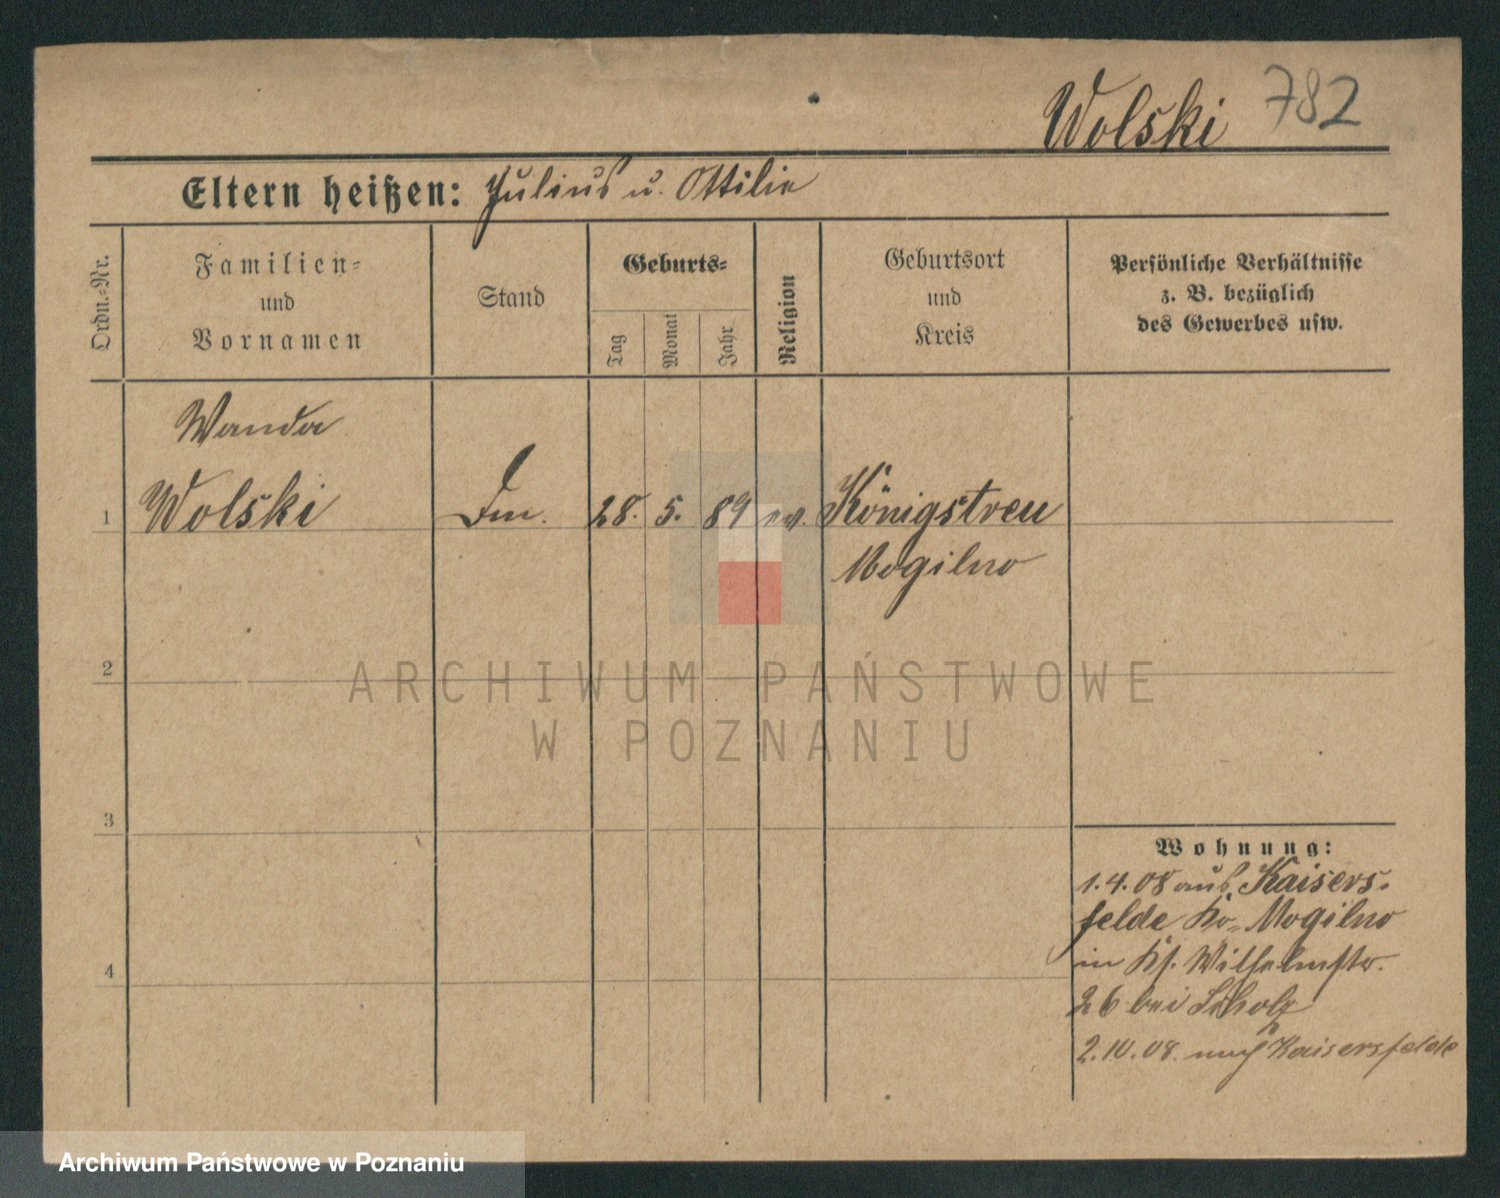 Wolski 782
Eltern heißen: Julius u. Ottilie
Ordn.-Nr.
Familien-
und
Vornamen
Stand
Geburts-
Tag
Monat
Jahr
Religion
Geburtsort
und
Kreis
Persönliche Verhältnisse
z. B. bezüglich
des Gewerbes usw.
Wanda
1 Wolski 28. 5. 89 ev. Königstreu
Mogilno
2
3
4
Wohnung:
1.4.08 aus Kaisers-
felde Kr. Mogilno
in Wilhelmstr.
26 bei Scholz
2.10.08. nach Kaisersfelde
ARCHIWUM PAŃSTWOWE
W POZNANIU
Archiwum Państwowe w Poznaniu